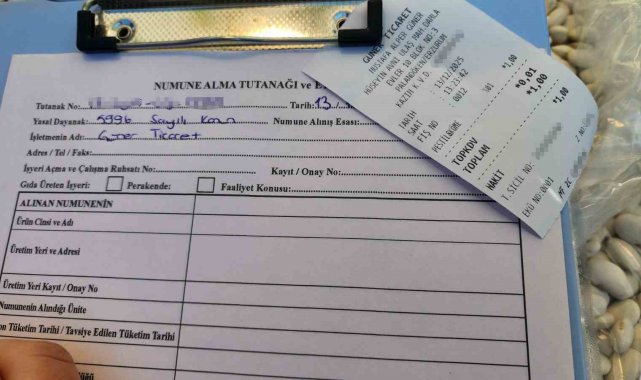 NUMUNE ALMA TUTANAĞI ve
Tutanak No: Tarih: 13/
Yasal Dayanak: 5996 Sayılı Kanun Numune Alınış Esası:
İşletmenin Adı: Güner Ticaret
Adres / Tel / Faks:
İşyeri Açma ve Çalışma Ruhsatı No: Kayıt / Onay No:
Gıda Üreten İşyeri: Perakende: Faaliyet Konusu:
ALINAN NUMUNENİN
Ürün Cinsi ve Adı
Üretim Yeri ve Adresi
Üretim Yeri Kayıt / Onay No
Numunenin Alındığı Ünite
on Tüketim Tarihi / Tavsiye Edilen Tüketim Tarihi
GÜNER TİCARET
MUSTAFA ALPER GÜNER
HÜSEYİN AVNİ ULAŞ MAH. DAMLA
EVLER 10 BLOK NO:3
PALANDÖKEN/ERZURUM
KAZIM K V.D.
TARİH 13/12/2025
SAAT 13:23:42
FİŞ NO 0012
%01 *1,00
TOPKDV *0,01
TOPLAM *1,00
NAKİT *1,00
T.SİCİL NO:
EKÜ NO:0001